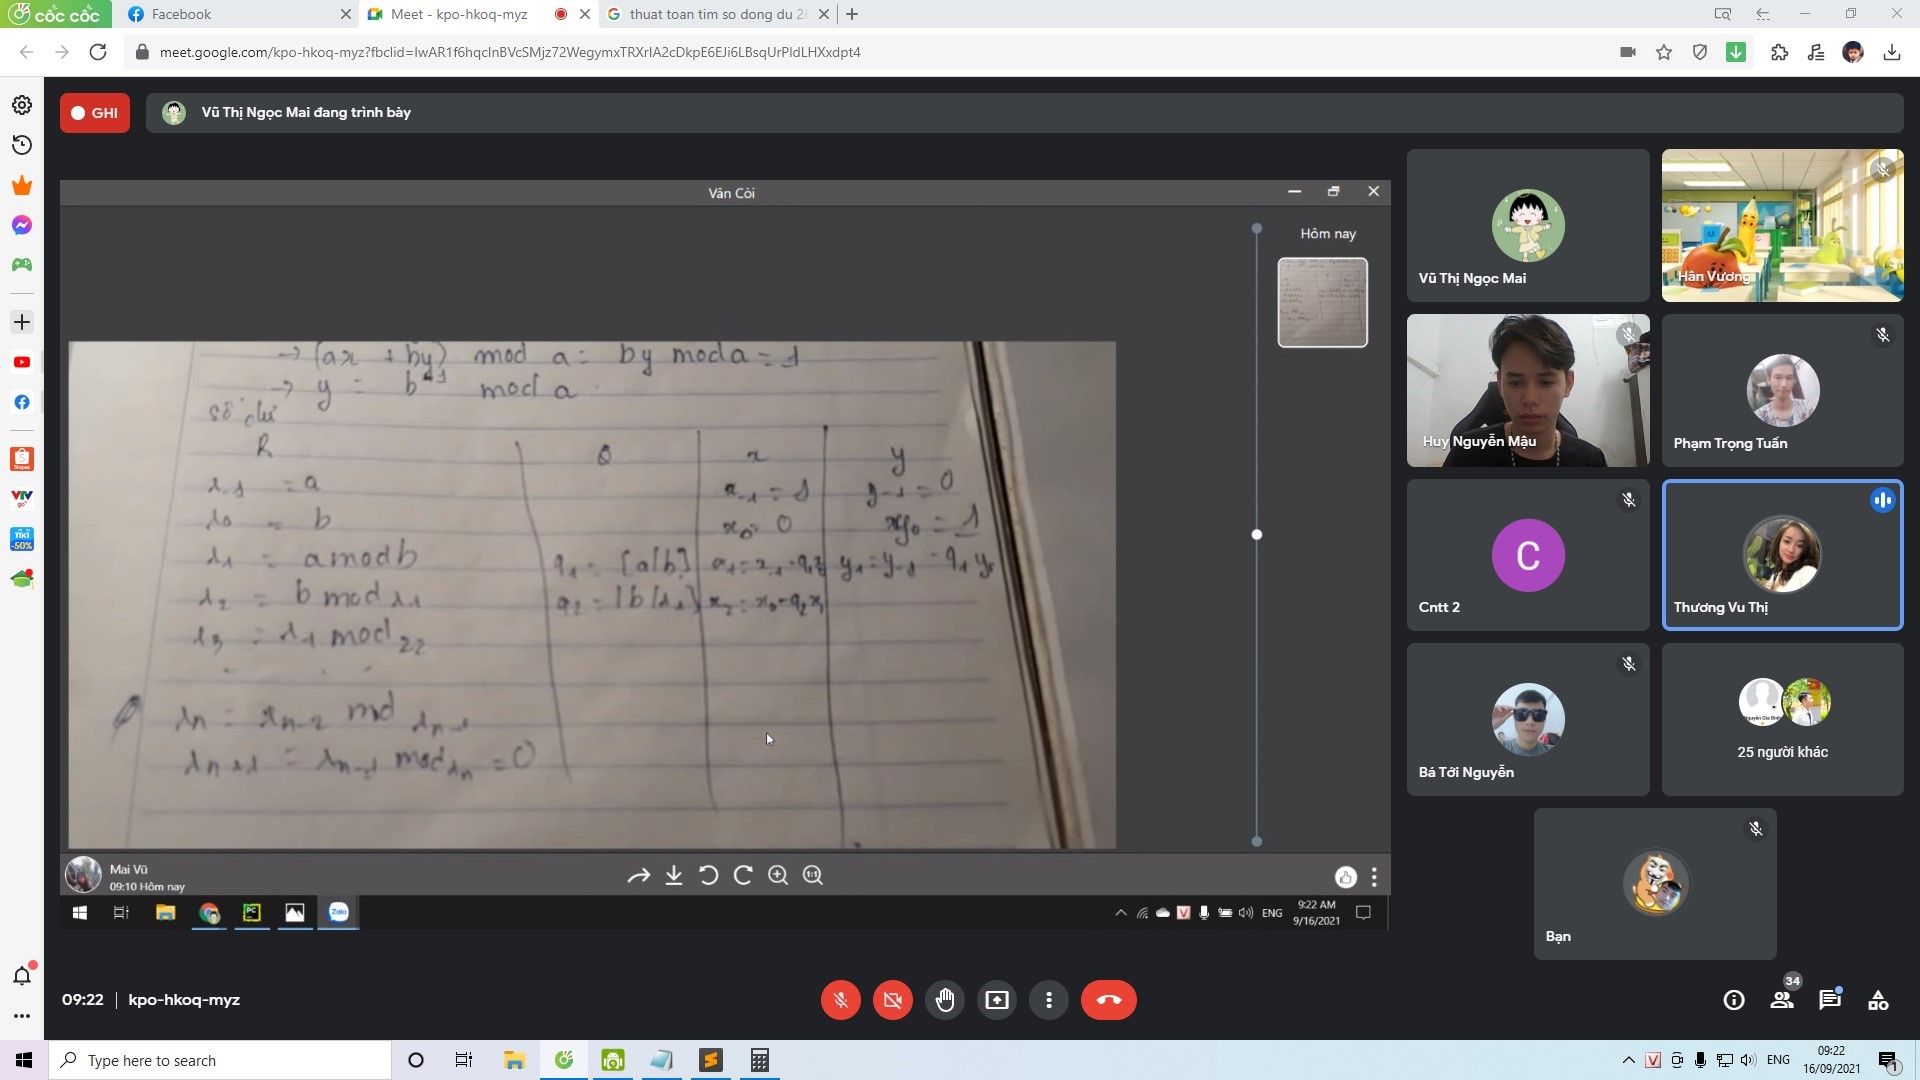 cốc cốc
Facebook
Meet - kpo-hkoq-myz
thuat toan tim so dong du 26
meet.google.com/kpo-hkoq-myz?fbclid=IwAR1f6hqcInBVcSMjz72WegymxTRXrIA2cDkpE6EJi6LBsqUrPldLHXxdpt4
GHI
Vũ Thị Ngọc Mai đang trình bày
Vân Còi
Hôm nay
→ (ax + by) mod a = by mod a = 1
→ y = b⁻¹ mod a
số dư
R Q x y
r₋₁ = a x₋₁ = 1 y₋₁ = 0
r₀ = b x₀ = 0 y₀ = 1
r₁ = a mod b q₁ = [a/b] x₁ = x₋₁ - q₁x y₁ = y₋₁ - q₁ y₀
r₂ = b mod r₁ q₂ = [b/r₁] x₂ = x₀ - q₂x₁
r₃ = r₁ mod r₂
rn = rn-2 mod rn-1
rn+1 = rn-1 mod rn = 0
Mai Vũ
09:10 Hôm nay
Zalo
ENG
9:22 AM
9/16/2021
Vũ Thị Ngọc Mai
Hân Vương
Huy Nguyễn Mậu
Phạm Trọng Tuấn
C
Cntt 2
Thương Vu Thị
Bá Tới Nguyễn
25 người khác
Bạn
09:22 | kpo-hkoq-myz
34
Type here to search
ENG
09:22
16/09/2021
1